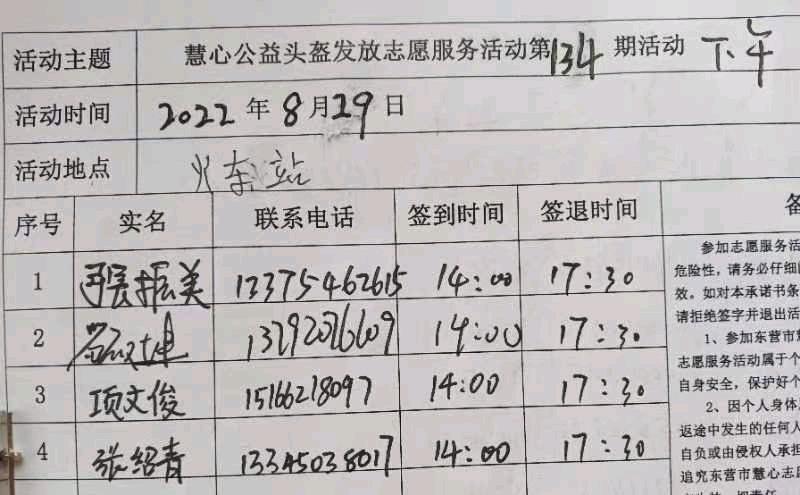 活动主题 慧心公益头盔发放志愿服务活动第134期活动 下午
活动时间 2022年8月29日
活动地点 火车站
序号 实名 联系电话 签到时间 签退时间 备
1 振美 12375462615 14:00 17:30
2 13292026609 14:00 17:30
3 项文俊 15166218097 14:00 17:30
4 张绍青 13345038017 14:00 17:30
参加志愿服务活
危险性，请务必仔细
效。如对本承诺书条
请拒绝签字并退出活
1、参加东营市慧
志愿服务活动属于个
自身安全，保护好个
2、因个人身体
返途中发生的任何人
自负或由侵权人承担
追究东营市慧心志愿